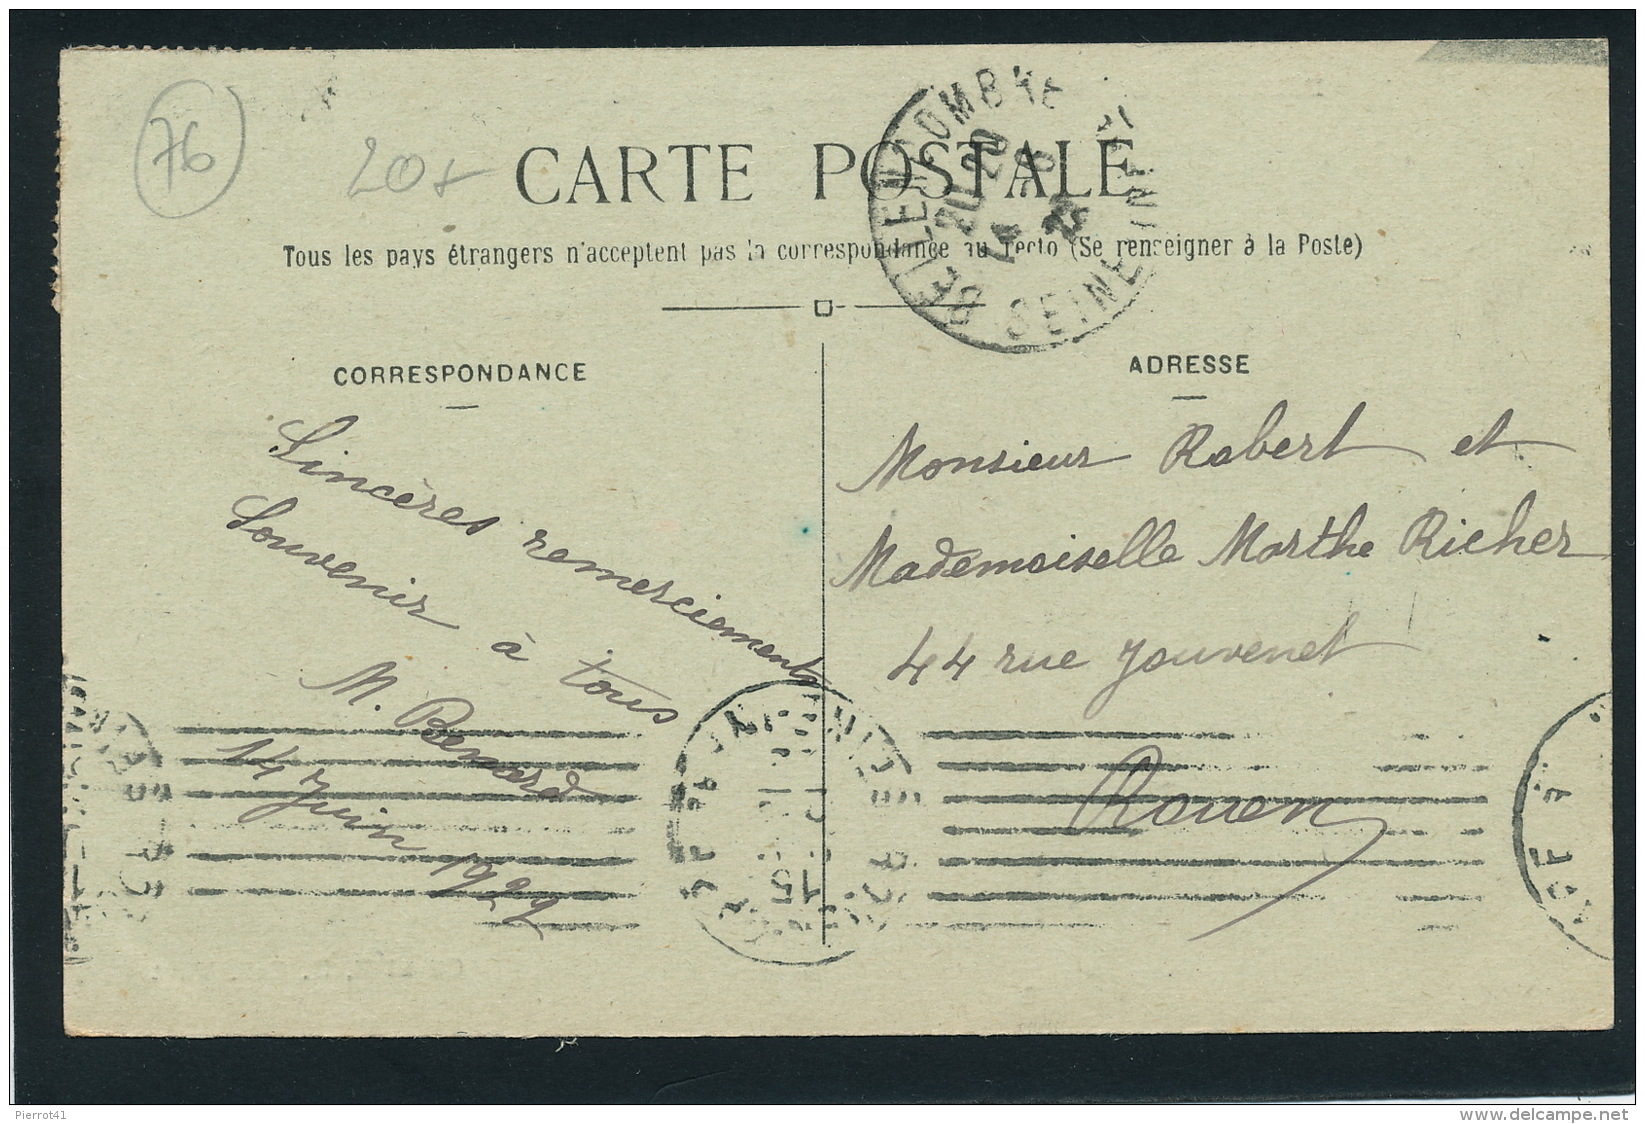 76
20+
CARTE POSTALE
Tous les pays étrangers n'acceptent pas la correspondance au recto (Se renseigner à la Poste)
BELLENCOMBRE
20
14
22
SEINE INFRE
CORRESPONDANCE
Sincères remerciements
Souvenir à tous
M. Benard
14 Juin 1922
ADRESSE
Monsieur Robert et
Mademoiselle Marthe Richer
44 rue Jouvenet
Rouen
Pierrot41
www.delcampe.net